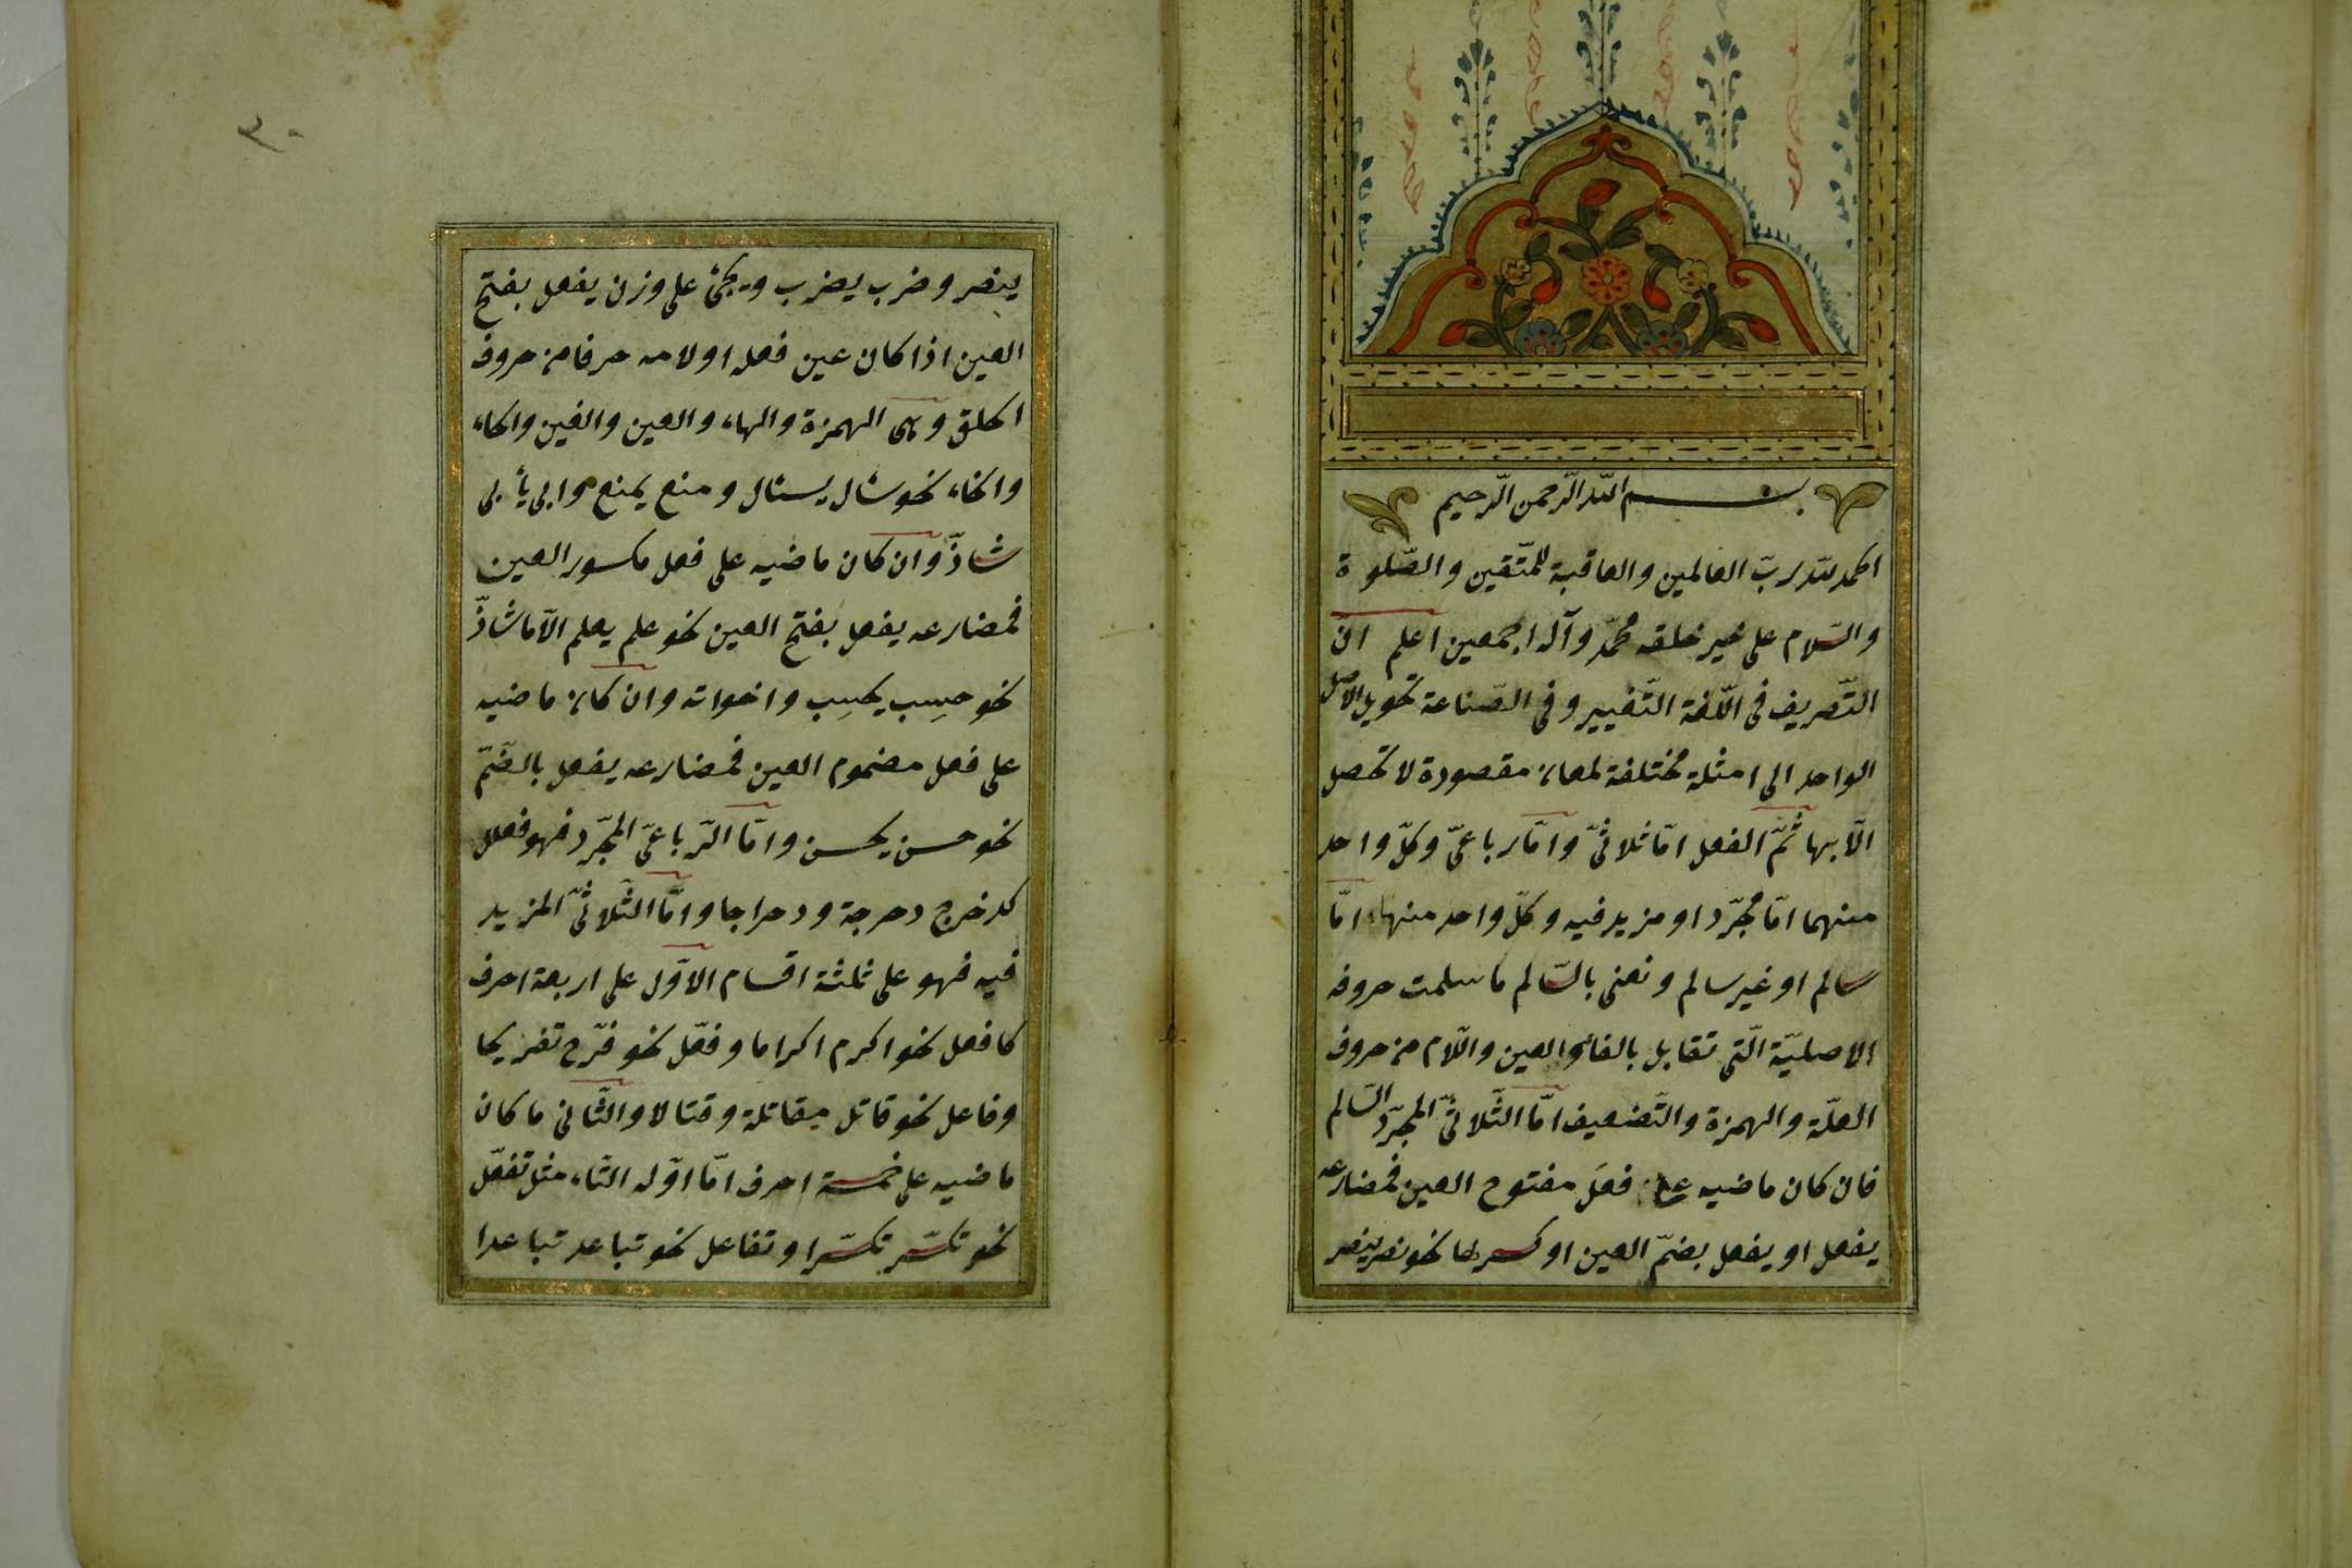 بسم الله الرّحمن الرّحيم
الحمد لله ربّ العالمين والعاقبة للمتّقين والصّلوة
والسّلام على خير خلقه محمّد وآله اجمعين اعلم انّ
التّصريف فى اللّغة التّغيير و فى الصّناعة تحويل الاصل
الواحد الى امثلة مختلفة لمعان مقصودة لا تحصل
الّا بها ثمّ الفعل امّا ثلاثىّ وامّا رباعىّ وكلّ واحد
منهما امّا مجرّد او مزيد فيه وكلّ واحد منها امّا
سالم او غير سالم و نعنى بالسّالم ما سلمت حروفه
الاصليّة الّتى تقابل بالفاء والعين واللّام من حروف
العلّة والهمزة والتّضعيف امّا الثّلاثىّ المجرّد السّالم
فان كان ماضيه على فعل مفتوح العين فمضارعه
يفعل او يفعل بضمّ العين او كسرها نحو نصر ينصر
٣٠
ينصر و ضرب يضرب و يجئ على وزن يفعل بفتح
العين اذا كان عين فعله او لامه حرفا من حروف
الحلق و هى الهمزة والهاء والعين والغين والحاء
والخاء نحو سأل يسئال و منع يمنع و ابى يأبى
شاذّ وان كان ماضيه على فعل مكسور العين
فمضارعه يفعل بفتح العين نحو علم يعلم الّا ما شاذّ
نحو حسِب يحسِب و اخواته وان كان ماضيه
على فعل مضموم العين فمضارعه يفعل بالضّمّ
نحو حسن يحسن و امّا الرّباعىّ المجرّد فهو فعلل
كدحرج دحرجة و دحراجا و امّا الثّلاثىّ المزيد
فيه فهو على ثلثة اقسام الاوّل على اربعة احرف
كافعل نحو اكرم اكراما و فعّل نحو فرّح تفريحا
وفاعل نحو قاتل مقاتلة و قتالا والثّانى ما كان
ماضيه على خمسة احرف امّا اوّله التّاء مثل تفعّل
نحو تكسّر تكسّرا و تفاعل نحو تباعد تباعدا